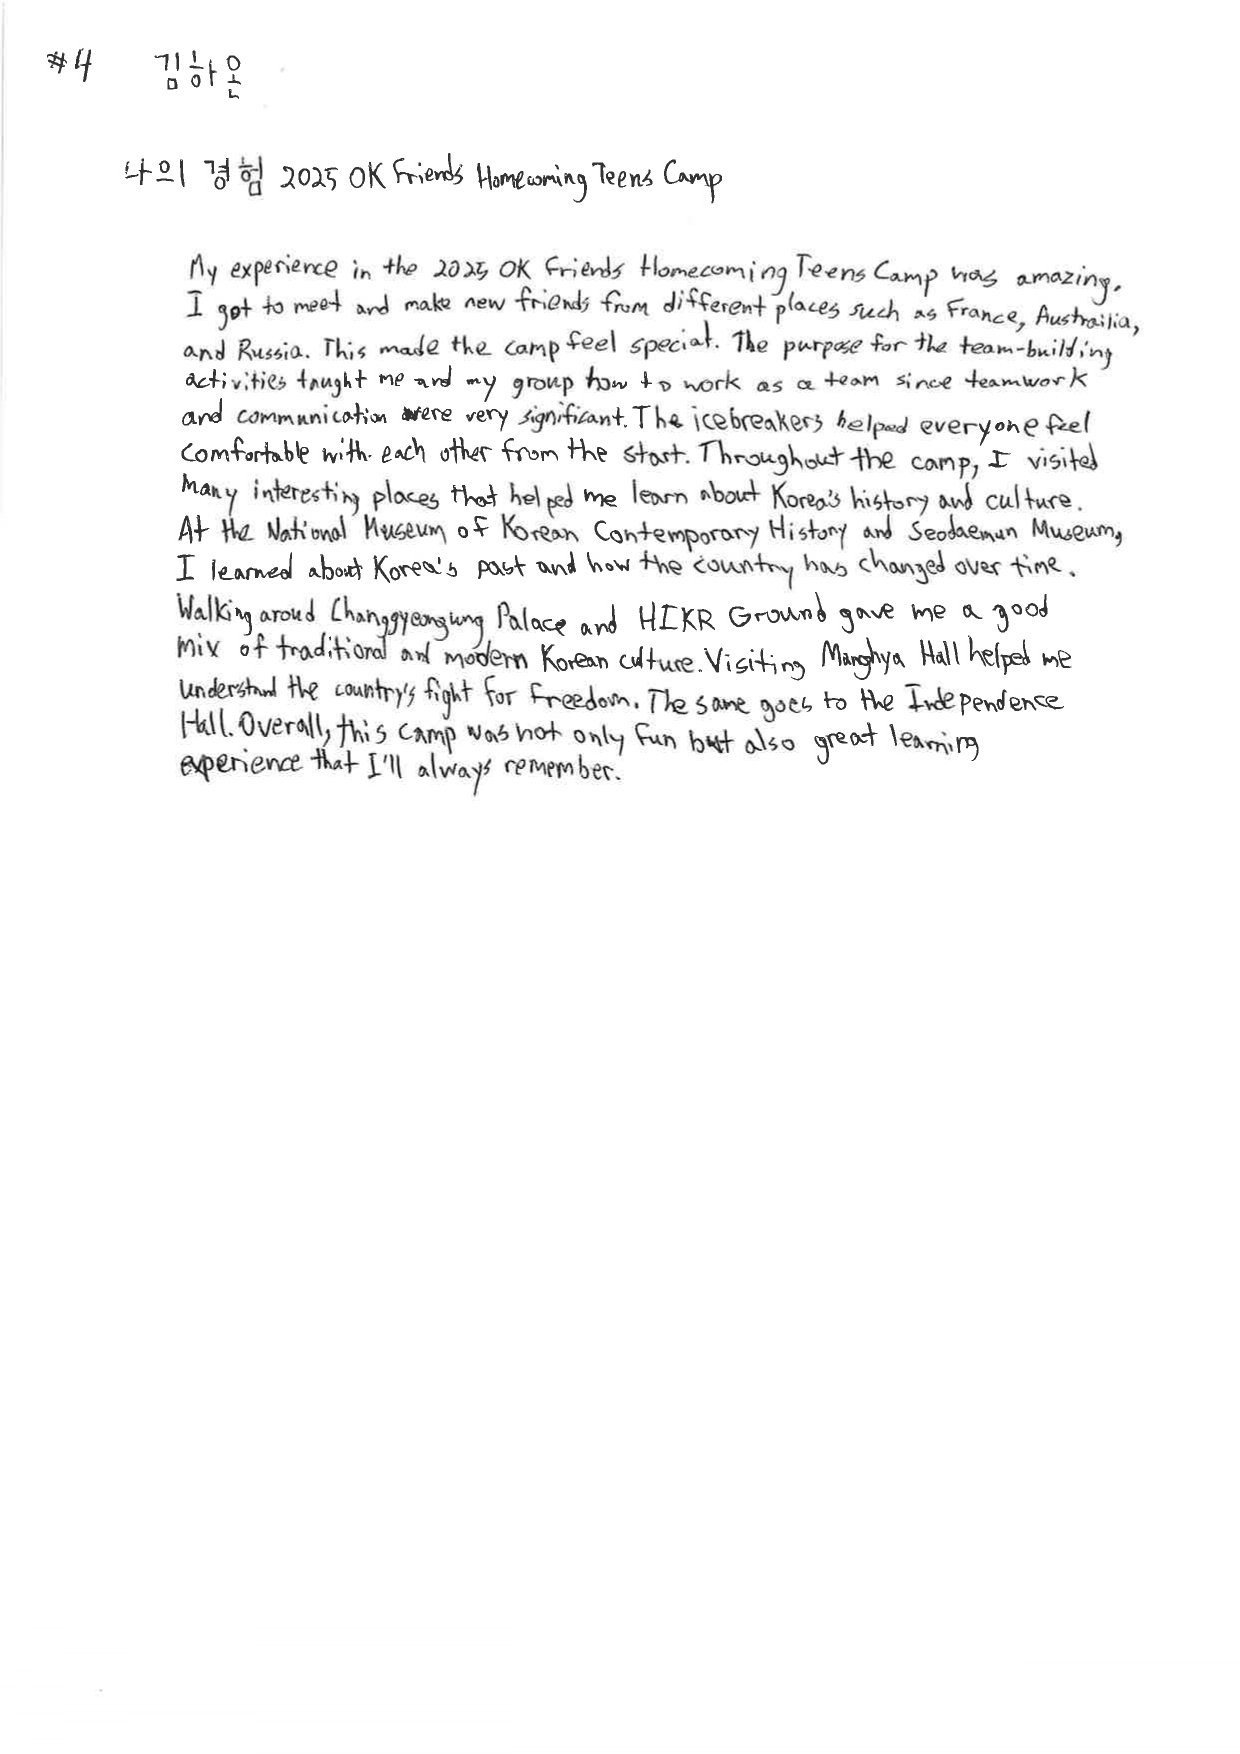 #4 김하온
나의 경험 2025 OK Friends Homecoming Teens Camp
My experience in the 2025 OK Friends Homecoming Teens Camp was amazing.
I got to meet and make new friends from different places such as France, Austrailia,
and Russia. This made the camp feel special. The purpose for the team-building
activities taught me and my group how to work as a team since teamwork
and communication were very significant. The icebreakers helped everyone feel
comfortable with each other from the start. Throughout the camp, I visited
many interesting places that helped me learn about Korea's history and culture.
At the National Museum of Korean Contemporary History and Seodaemun Museum,
I learned about Korea's past and how the country has changed over time.
Walking aroud Changgyeongung Palace and HIKR Ground gave me a good
mix of traditional and modern Korean culture. Visiting Manghya Hall helped me
understand the country's fight for freedom. The same goes to the Independence
Hall. Overall, this camp was not only fun but also great learning
experience that I'll always remember.